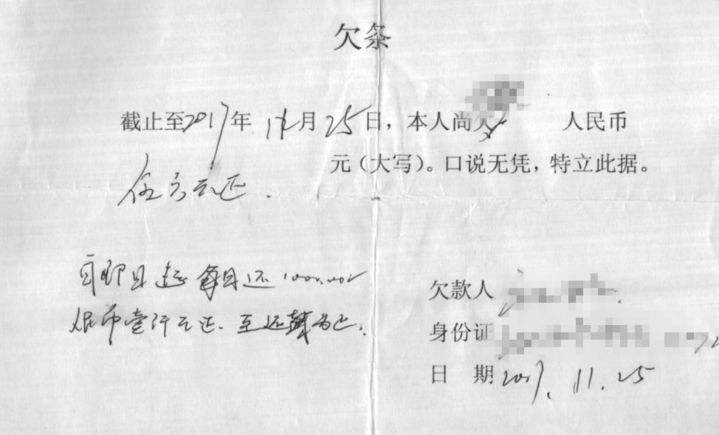 欠条
截止至2017年11月25日，本人尚欠 人民币
元（大写）。口说无凭，特立此据。
元正.
自即日起每月还1000.00
人民币壹仟元正.至还清为止.
欠款人
身份证
日 期2017.11.25